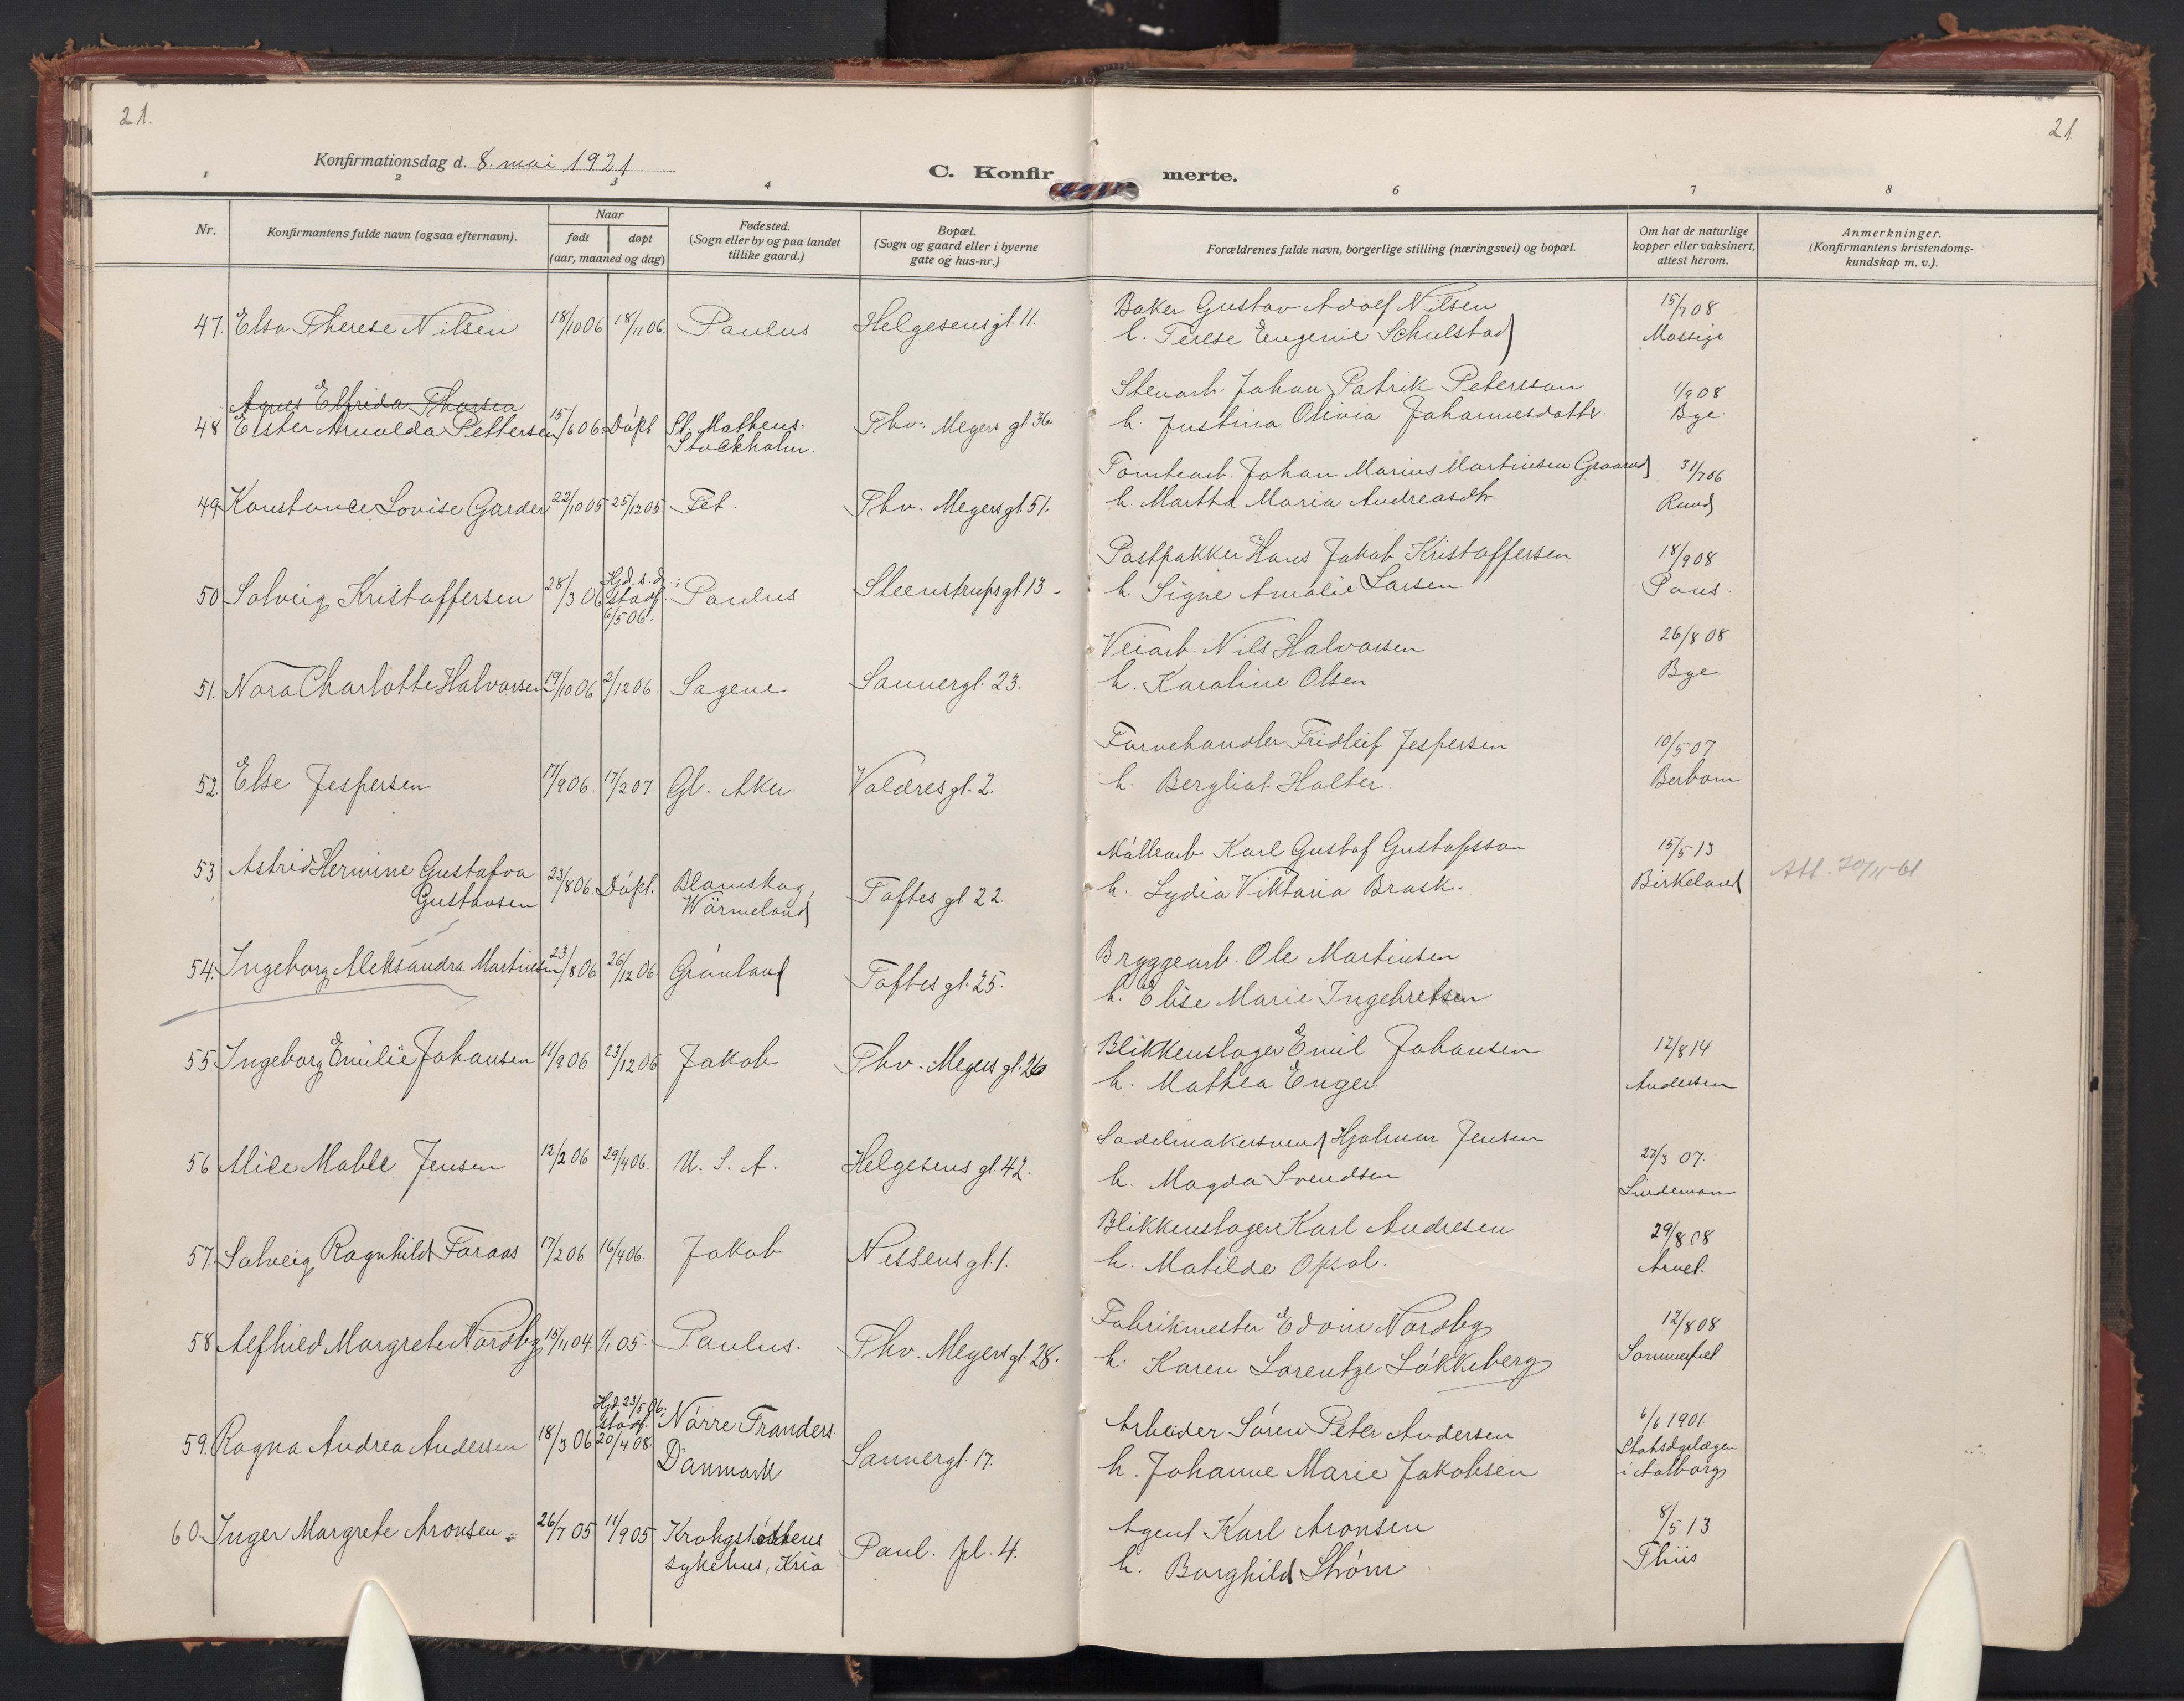 21.
21.
Konfirmationsdag d. 8. mai 1921.
C. Konfirmerte.
1 2 3 4 6 7 8
Nr.
Konfirmantens fulde navn (ogsaa efternavn).
Naar
født
døpt
(aar, maaned og dag)
Fødested.
(Sogn eller by og paa landet
tillike gaard.)
Bopæl.
(Sogn og gaard eller i byerne
gate og hus-nr.)
Forældrenes fulde navn, borgerlige stilling (næringsvei) og bopæl.
Om hat de naturlige
kopper eller vaksinert,
attest herom.
Anmerkninger.
(Konfirmantens kristendoms-
kundskap m. v.).
47. Elsa Therese Nilsen 18/10 06 18/11 06. Paulus Helgesens gt. 11.
Baker Gustav Adolf Nilsen
h. Terese Eugenie Schulstad
15/7 08
Massige
Agnes Elfrida Thorsen
48 Ester Arnolda Pettersen 15/6 06 Døpt St. Matheus.
Stockholm.
Thv. Meyers gt 36.
Stenarb. Johan Patrik Petersson
h. Justina Olivia Johannesdattr.
1/9 08
Bye.
49. Konstance Lovise Garder 22/10 05 25/12 05 Fet. Thv. Meyers gt. 51.
Tomtearb. Johan Marius Martinsen Graarud
h. Martha Maria Andreasdtr.
31/7 06
Ruud
50 Solveig Kristoffersen 28/3 06 Hjd. s. d.;
stadf.
6/5 06.
Paulus Steenstrups gt 13.
Postpakker Hans Jakob Kristoffersen
h Signe Amalie Larsen
18/9 08
Paus.
51. Nora Charlotte Halvorsen 19/10 06 2/12 06. Sagene Sannergt. 23.
Veiarb. Nils Halvorsen
h. Karoline Olsen
26/8 08
Bye.
52. Else Jespersen 17/9 06. 17/2 07. Gl. Aker Valdres gt. 2.
Farvehandler Fridleif Jespersen
h. Bergliot Holter.
10/5 07
Berbom
53 Astrid Hermine Gustafva
Gustavsen
23/8 06. Døpt. Blomskog,
Wärmeland
Toftes gt 22.
Møllearb. Karl Gustaf Gustafsson
h. Lydia Viktoria Brask.
15/5 13
Birkeland
Att. 20/11-61
54. Ingeborg Aleksandra Martinsen 23/8 06 26/12 06 Grønland Toftes gt. 25.
Bryggearb. Ole Martinsen
h. Elise Marie Ingebretsen
55. Ingeborg Emilie Johansen 11/9 06 23/12 06 Jakob Thv. Meyers gt. 26
Blikkenslager Emil Johansen
h. Mathea Enger.
12/8 14
Andersen
56 Alice Mable Jensen 12/2 06 29/4 06. U. S. A. Helgesens gt. 42.
Sadelmakersvend Hjalmar Jensen
h. Magda Svendsen
27/3 07.
Lindeman
57. Solveig Ragnhild Foraas 17/2 06 16/4 06. Jakob Nessens gt. 1.
Blikkenslager Karl Andresen
h. Matilde Opsal.
29/8 08
Arnet.
58 Alfhild Margrete Nordby 15/11 04. 1/1 05. Paulus. Thv. Meyers gt. 28.
Fabrikmester Edvin Nordby
h. Karen Lorentze Løkkeberg
12/8 08
Sommerfelt.
59. Ragna Andrea Andersen 18/3 06 Hjd 23/5 06;
stadf.
20/4 08.
Nørre Tranders
Danmark
Sannergt. 17.
Arbeider Søren Peter Andersen
h. Johanne Marie Jakobsen
6/6 1901.
i Aalborg
60. Inger Margrete Aronsen. 26/7 05 11/9 05 Krohgstøttens
sykehus, Kria
Paul. pl. 4.
Agent Karl Aronsen
h. Borghild Strøm
8/5 13
Thiis